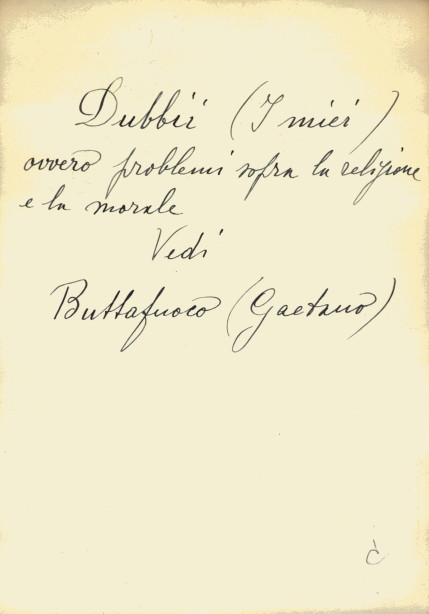 Dubbii (I miei)
ovvero problemi sopra la religione
e la morale
Vedi
Buttafuoco (Gaetano)
c̀